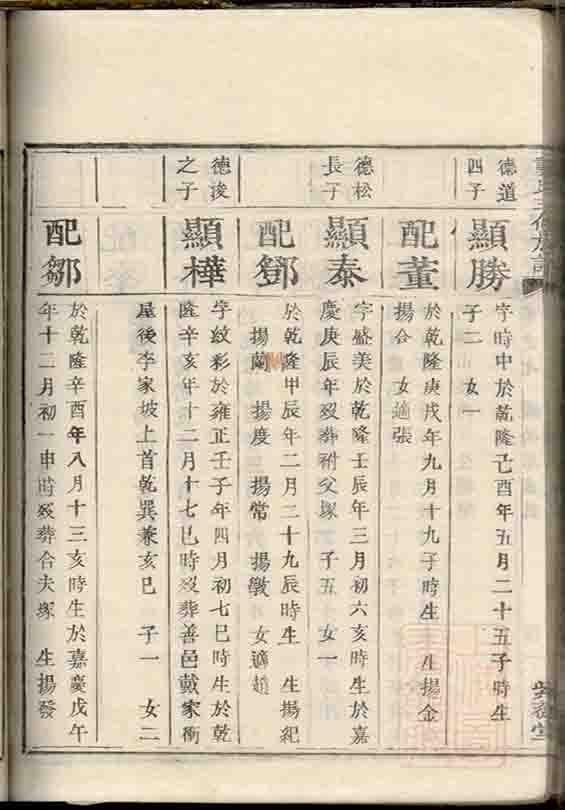 德道
四子
顯勝
字時中於乾隆己酉年五月二十五子時生
子二 女一
配董
於乾隆庚戌年九月十九子時生 生揚金
揚合 女適張
德松
長子
顯泰
字盛美於乾隆壬辰年三月初六亥時生於嘉
慶庚辰年歿葬祔父塚 子五 女一
配鄧
於乾隆甲辰年二月二十九辰時生 生揚紀
揚蘭 揚度 揚常 揚 女適趙
德浚
之子
顯樺
字紋彩於雍正壬子年四月初七巳時生於乾
隆辛亥年十二月十七巳時歿葬善邑戴家衝
屋後李家坡上首乾巽兼亥巳 子一 女二
配鄒
於乾隆辛酉年八月十三亥時生於嘉慶戊午
年十二月初一申時歿葬合夫塚 生揚發